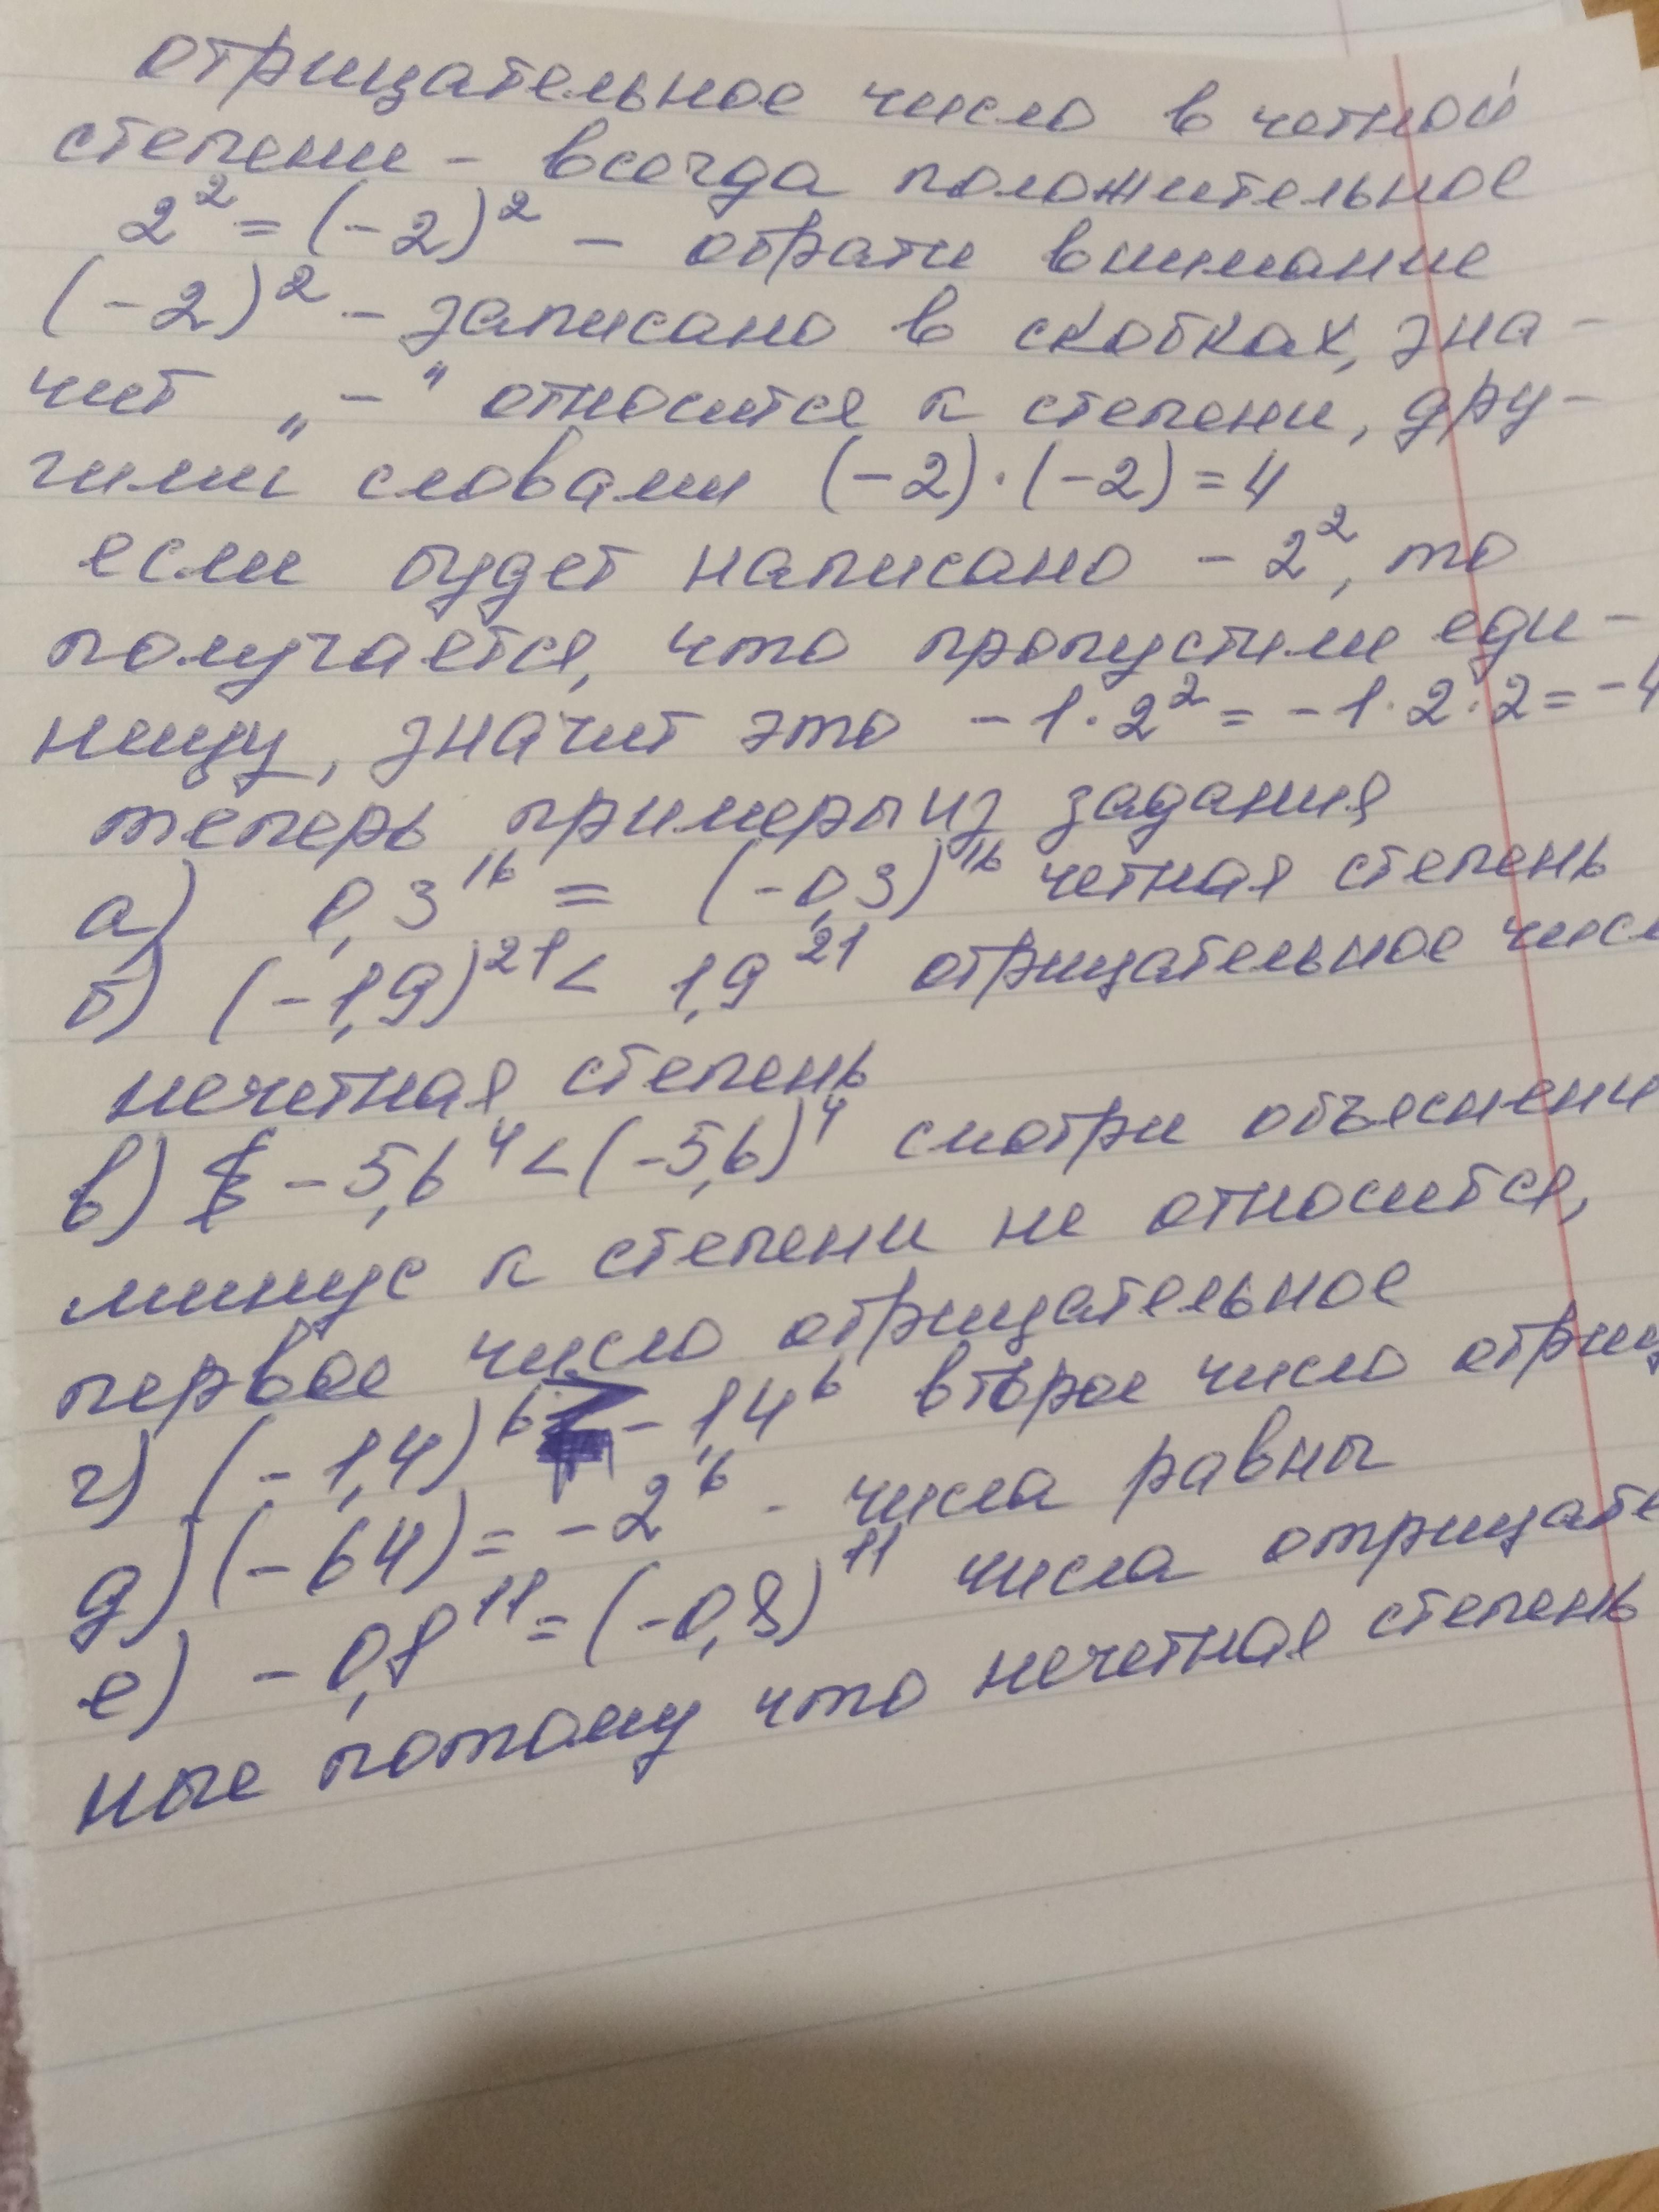 отрицательное число в четной
степени - всегда положительное
2² = (-2)² - обрати внимание
(-2)² - записано в скобках, зна-
чит „-" относится к степени, дру-
гими словами (-2)·(-2)=4
если будет написано -2², то
получается, что пропустили еди-
ницу, значит это -1·2² = -1·2·2= -4
теперь примеры из задания
а) 0,3¹⁶ = (-0,3)¹⁶ четная степень
б) (-1,9)²¹ < 1,9²¹ отрицательное число
нечетная степень
в) -5,6⁴ < (-5,6)⁴ смотри объяснени
минус к степени не относится,
первое число отрицательное
г) (-1,4)⁶ > - 1,4⁶ второе число отриц
д) (-64) = -2⁶ - числа равны
е) -0,8¹¹ = (-0,8)¹¹ числа отрицате
ные потому что нечетная степень